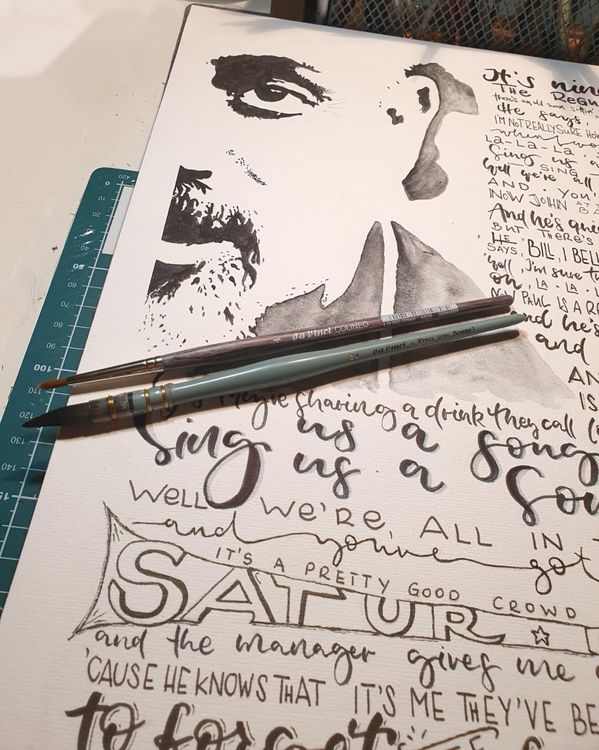 It's nine
THE REGU
there's an old man sittin'
He says,
I'M NOT REALLY SURE HOW
when I wo
LA-LA-LA
Sing us a
SING
Well we're all
AND YOU'
NOW JOHN AT
And he's quic
BUT THERE'S
HE SAYS, "BILL, I BELI
Well, I'm sure t
on, LA LA L
Now PAUL IS A R
and he's
and
AN
IS
da vinci COLINEO
da vinci
they're sharing a drink they call l
Sing us a song
us a So
WELL WE'RE ALL IN T
and you've got
IT'S A PRETTY GOOD CROWD
SATUR
and the manager gives me
'CAUSE HE KNOWS THAT IT'S ME THEY'VE BE
to forget